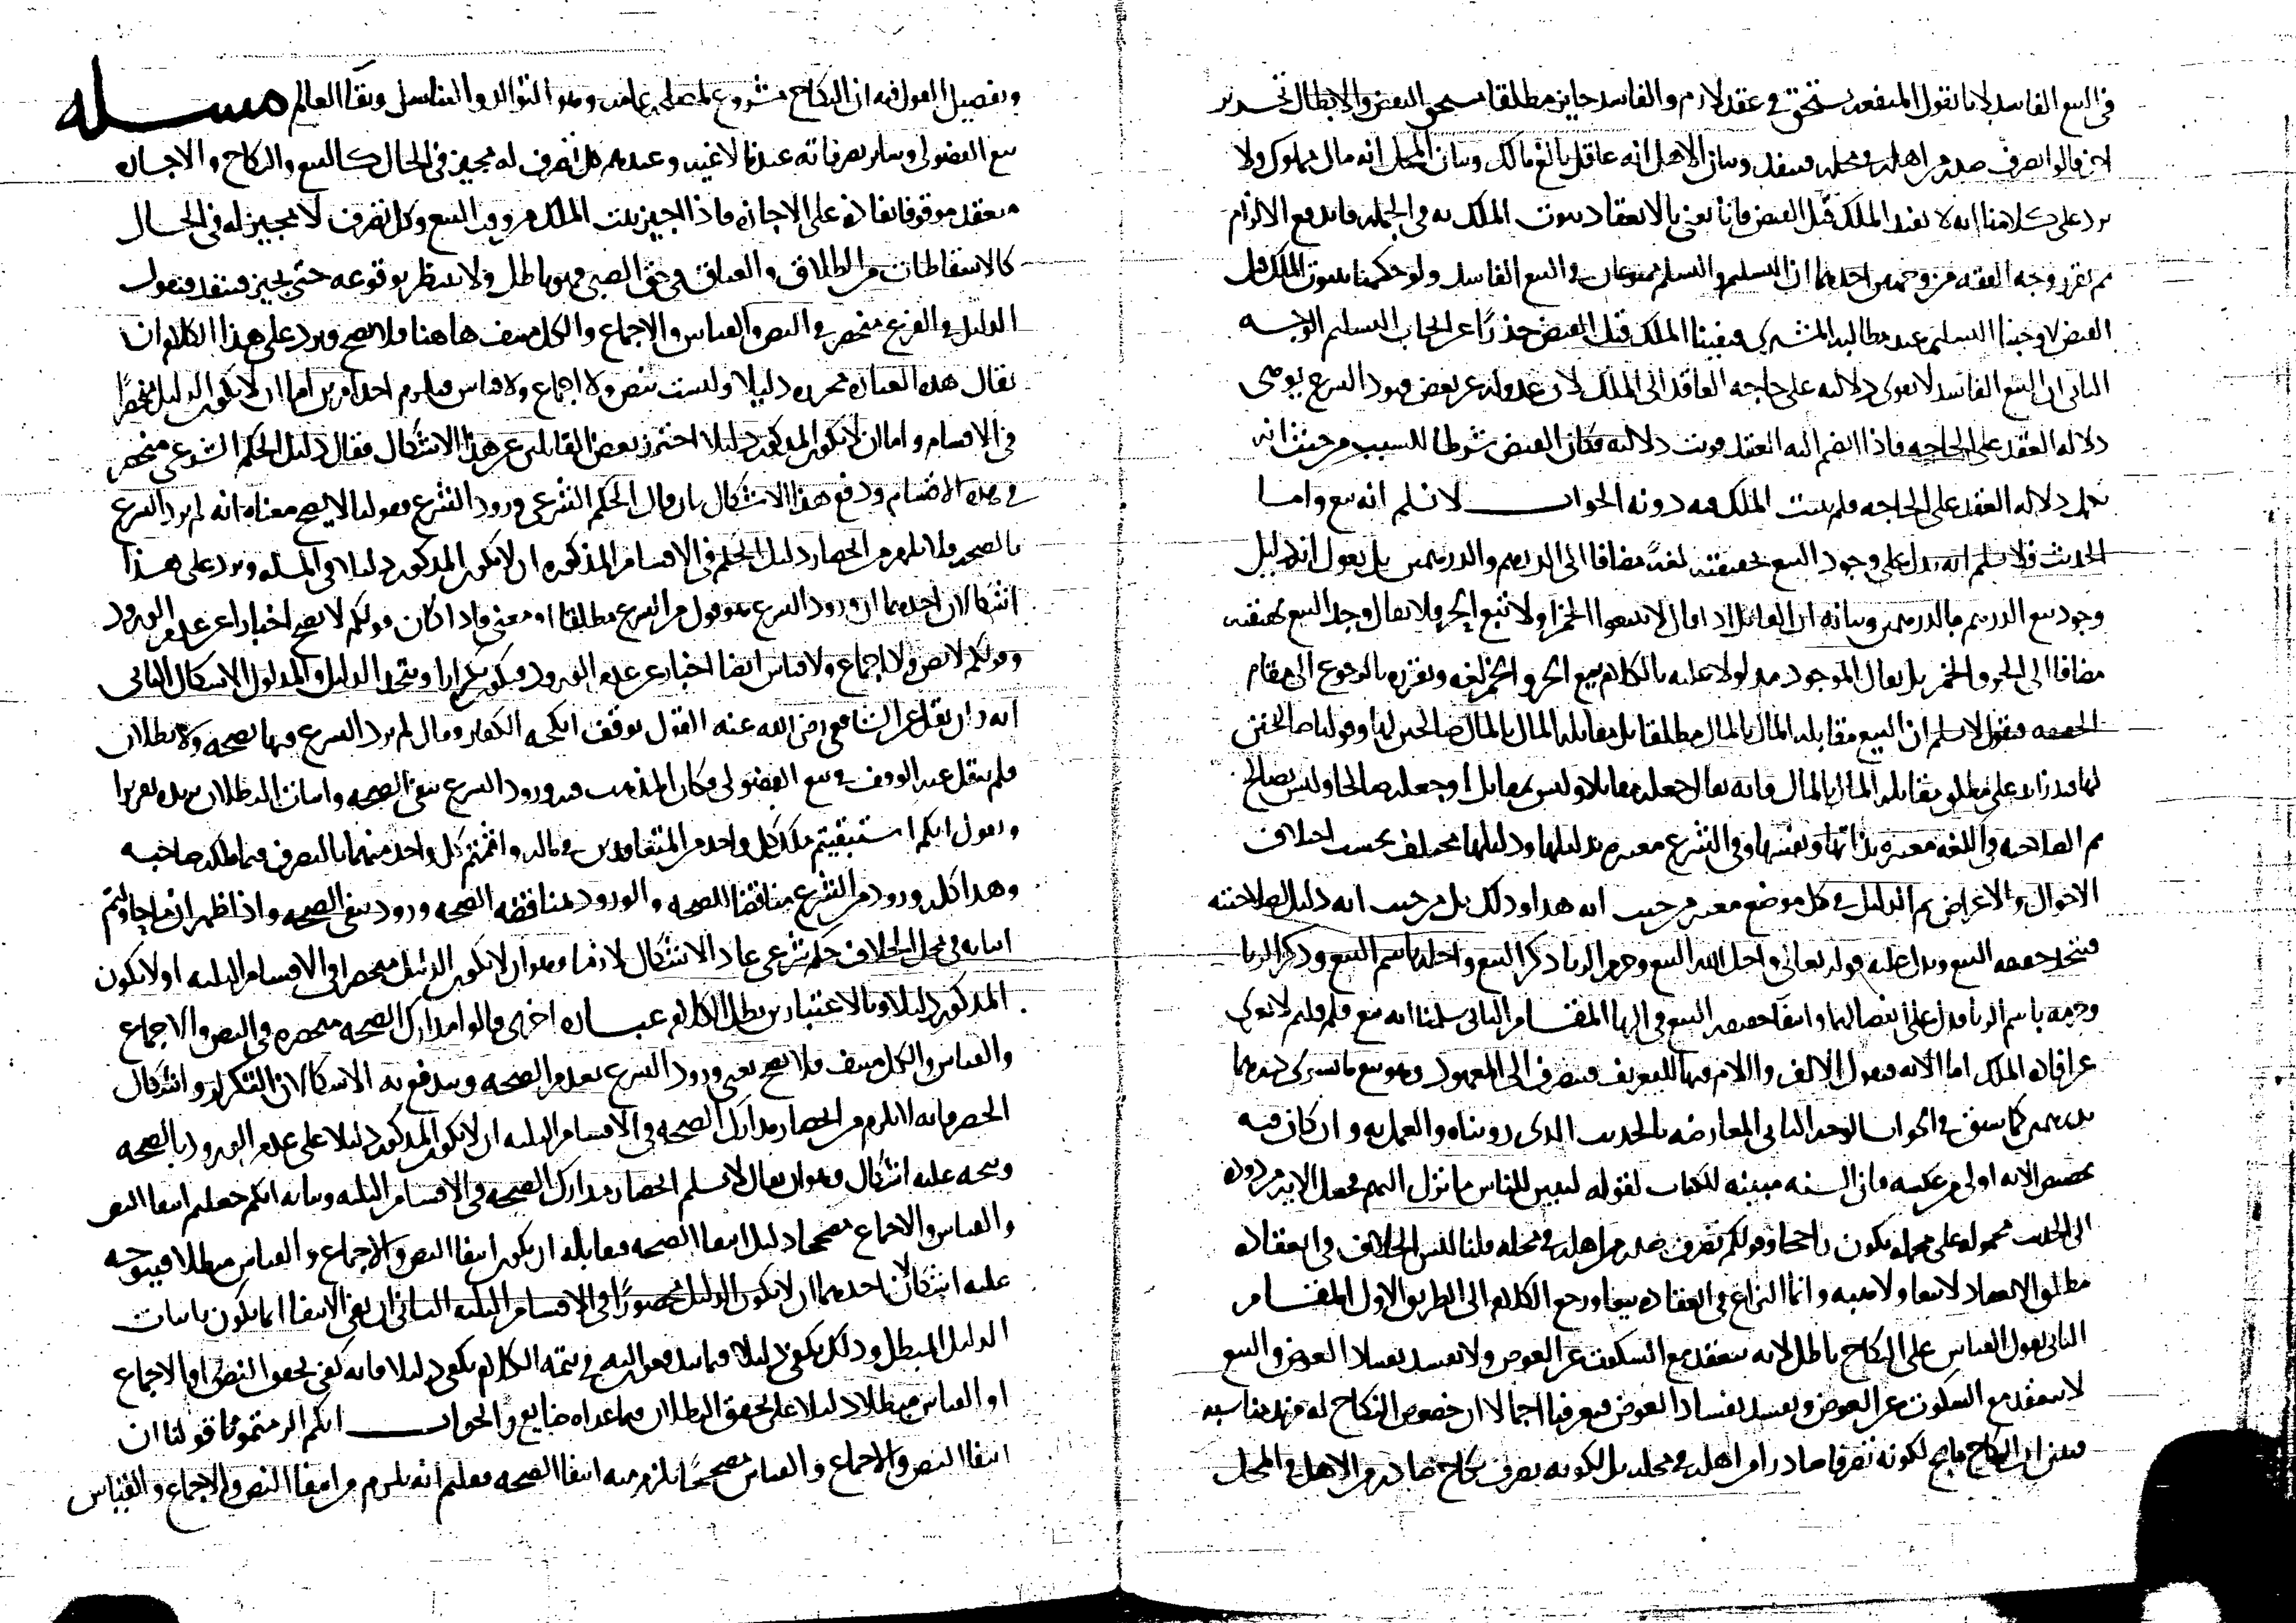 في البيع الفاسد لانا نقول المنفعه تستحق في عقد لازم والفاسد جايز مطلقا مستحق النقض والابطال
قالوا تصرف صدر من اهله في محله فينعقد وبيان الاهل انه عاقل بالغ مالك وبيان المحل انه مال مملوك ولا
يرد على كلامنا انه لا يفيد الملك قبل القبض فانا نعني بالانعقاد ثبوت الملك به في الجمله فاندفع الالزام
ثم تقرر وجه الفقه من وجهين احدهما ان التسليم والتسلم ممنوعان في البيع الفاسد ولو حكمنا بثبوت الملك قبل
القبض لاوجبنا التسليم عند مطالبه المشتري فنفينا الملك قبل القبض حذرًا عن ايجاب التسليم الوجه
الثاني ان البيع الفاسد لا تقوى دلالته على حاجه العاقد الى الملك لان عدوله عن بعض قيود الشرع يوهي
دلاله العقد على الحاجه فاذا انضم اليه القبض قويت دلالته فكان القبض شرطا للسبب من حيث انه
تكمل دلاله العقد على الحاجه فلم يثبت الملك فيه دونه الجواب لا نسلم انه بيع واما
الحديث فلا نسلم انه يدل على وجود البيع بحقيقته لغةً مضافا الى الدرهم والدرهمين بل نقول انه دليل
وجود بيع الدرهم بالدرهمين وبيانه ان القائل اذا قال لا تبيعوا الخمر ولا تبع الحر فلا يقال وجد البيع بحقيقته
مضافا الى الحر والخمر بل يقال الموجود مدلولا عليه بالكلام بيع الحر والخمر لغه ونقرره بالرجوع الى مقام
الحقيقه فنقول لا نسلم ان البيع مقابله المال بالمال مطلقا بل مقابله المال بالمال صالحين لها وقولنا صالحين
لها قدر زائد على مطلق مقابله المال بالمال فانه يقال جعله مقابلا وليس بمقابل او جعله صالحا وليس بصالح
ثم الصلاحيه في اللغه معتبره بذاتها ونفسها وفي الشرع معتبره بدليلها ودليلها مختلف بحسب اختلاف
الاحوال والاعراض ثم الدليل في كل موضع معتبر من حيث انه هذا وذلك بل من حيث انه دليل صلاحيته
حقيقه البيع ويدل عليه قوله تعالى واحل الله البيع وحرم الربا ذكر البيع واحله باسم البيع وذكر الربا
وحرمه باسم الربا فدل على انفصالهما وانتفا حقيقه البيع في الربا المقام الثاني سلمنا انه بيع فلم قلتم لا يعرى
عن افاده الملك اما الايه فنقول الالف واللام فيها للتعريف فينصرف الى المعهود وهو بيع ما يشترى درهما
بدرهمين كما سبق في الجواب الوجه الثاني المعارضه بالحديث الذي رويناه والعمل به وان كان فيه
تخصيص الايه اولى من عكسه فان السنه مبينه للكتاب لقوله لتبين للناس ما نزل اليهم فجعل الايه مردوده
الى الحديث محموله على محمله يكون راجحا وقولكم تصرف صدر من اهله في محله قلنا ليس الخلاف في انعقاده
مطلق الانعقاد لا بيعا ولا هبه وانما النزاع في انعقاده بيعا ورجع الكلام الى الطريق الاول المقام
الثاني نقول القياس على النكاح باطل لانه ينعقد مع السكوت عن العوض ولا يفسد بفساد العوض والبيع
لا ينعقد مع السكوت عن العوض ويفسد بفساد العوض فيعرفنا اجمالا ان خصوص النكاح له مزيد مناسبه
فبين ان النكاح ما صح لكونه تصرفا صادرا من اهله في محله بل لكونه تصرف نكاح صادر من الاهل في المحل
وتفصيل القول فيه ان النكاح مشروع لمصلحه عامه وهو التوالد والتناسل وبقا العالم مسله
بيع الفضولي وساير تصرفاته عندنا لاغيه وعندهم كل تصرف له مجيز في الحال كالبيع والنكاح والاجاره
منعقد موقوفا نفاذه على الاجازه فاذا اجيز يثبت الملك من وقت البيع وكل تصرف لا مجيز له في الحال
كالاسقاطات من الطلاق والعتاق في حق الصبي فهو باطل ولا ينتظر بوقوعه حتى يجيز فينفذ فنقول
الدليل في الفرع منحصر في النص والقياس والاجماع والكل منتف هاهنا فلا يصح ويرد على هذا الكلام ان
يقال هذه العباره محرره دليلا وليست بنص ولا اجماع ولا قياس فيلزم احد امرين اما ان لا يكون الدليل منحصرًا
في الاقسام واما ان لا يكون المذكور دليلا احترز بعض القائلين عن هذا الاشكال فقال دليل الحكم الشرعي منحصر
في هذه الاقسام ودفع هذا الاشكال بان قال الحكم الشرعي ورود الشرع وقولنا لا يصح معناه انه لم يرد الشرع
بالصحه فلا يلزم من انحصار دليل الحكم في الاقسام المذكوره ان لا يكون المذكور دليلا في المسله ويرد على هذا
اشكالان احدهما ان ورود الشرع منقول من الشرع مطلقا او معنى فاذا كان قولكم لا يصح اخبارا عن عدم الورود
وقولكم لا نص ولا اجماع ولا قياس ايضا اخبار عن عدم الورود فيكون تكرارا ويتحد الدليل والمدلول الاشكال الثاني
انه وان نقل عن الشافعي رضي الله عنه القول بوقف انكحه الكفار وقال لم يرد الشرع فيها بصحه ولا بطلان
فلم ينقل عنه الوقف في بيع الفضولي فكان المذهب فيه ورود الشرع بنفي الصحه واثبات البطلان يزيده تقريرا
ونقول انكم استبقيتم ملك كل واحد من المتعاقدين في ماله واثمتم كل واحد منهما بالتصرف فيما ملكه صاحبه
وهذا كله ورود من الشرع مناقضا للصحه والورود لمناقضه الصحه ورود بنفي الصحه واذا ظهر ان ما حاولتم
اثباته في محل الخلاف حكم شرعي عاد الاشكال لازما وهو ان لا يكون الدليل منحصرا في الاقسام الثلثه او لا يكون
المذكور دليلا وبالاعتبارين بطل الكلام عباره اخرى قالوا مدارك الصحه منحصره في النص والاجماع
والقياس والكل منتف فلا يصح يعني ورود الشرع بعدم الصحه ويندفع به الاشكالان التكرار واشكال
الحصر فانه لا يلزم من انحصار مدارك الصحه في الاقسام الثلثه ان لا يكون المذكور دليلا على عدم الورود بالصحه
ويتجه عليه اشكال وهو ان يقال لا نسلم انحصار مدارك الصحه في الاقسام الثلثه وبيانه انكم جعلتم انتفا النص
والقياس والاجماع مصححا دليل انتفا الصحه فمقابله ان يكون انتفا النص والاجماع والقياس مبطلا فيتوجه
عليه اشكالان احدهما ان لا يكون الدليل محصورًا في الاقسام الثلثه الثاني ان نفي الانتفا انما يكون باثبات
الدليل المبطل وذلك يكفي دليلا فما يندفعوا اليه في تتمه الكلام يكفي دليلا فانه كفى بحقو النص او الاجماع
او القياس مبطلا دليلا على تحقق البطلان فما عداه ضايع والجواب انكم الزمتمونا قولنا ان
انتفا النص والاجماع والقياس مصححًا يلزم منه انتفا الصحه فعلم انه يلزم من انتفا النص والاجماع والقياس